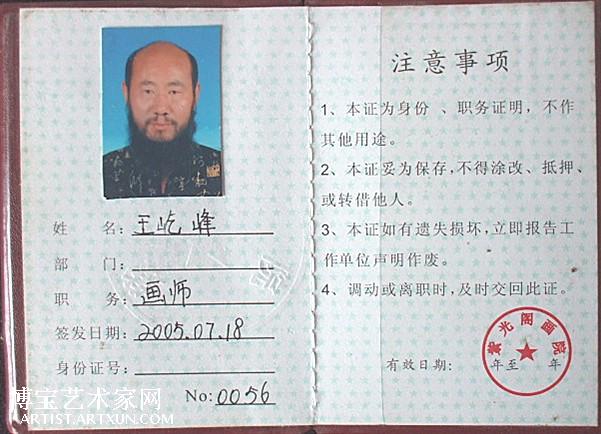 姓 名：王屹峰
部 门：
职 务：画师
签发日期：2005.07.18
身份证号：
No: 0056
博宝艺术家网
ARTIST.ARTXUN.COM
注意事项
1、本证为身份 、职务证明，不作
其他用途。
2、本证妥为保存，不得涂改、抵押、
或转借他人。
3、本证如有遗失损坏，立即报告工
作单位声明作废。
4、调动或离职时，及时交回此证。
紫光阁画院
有效日期： 年至 年